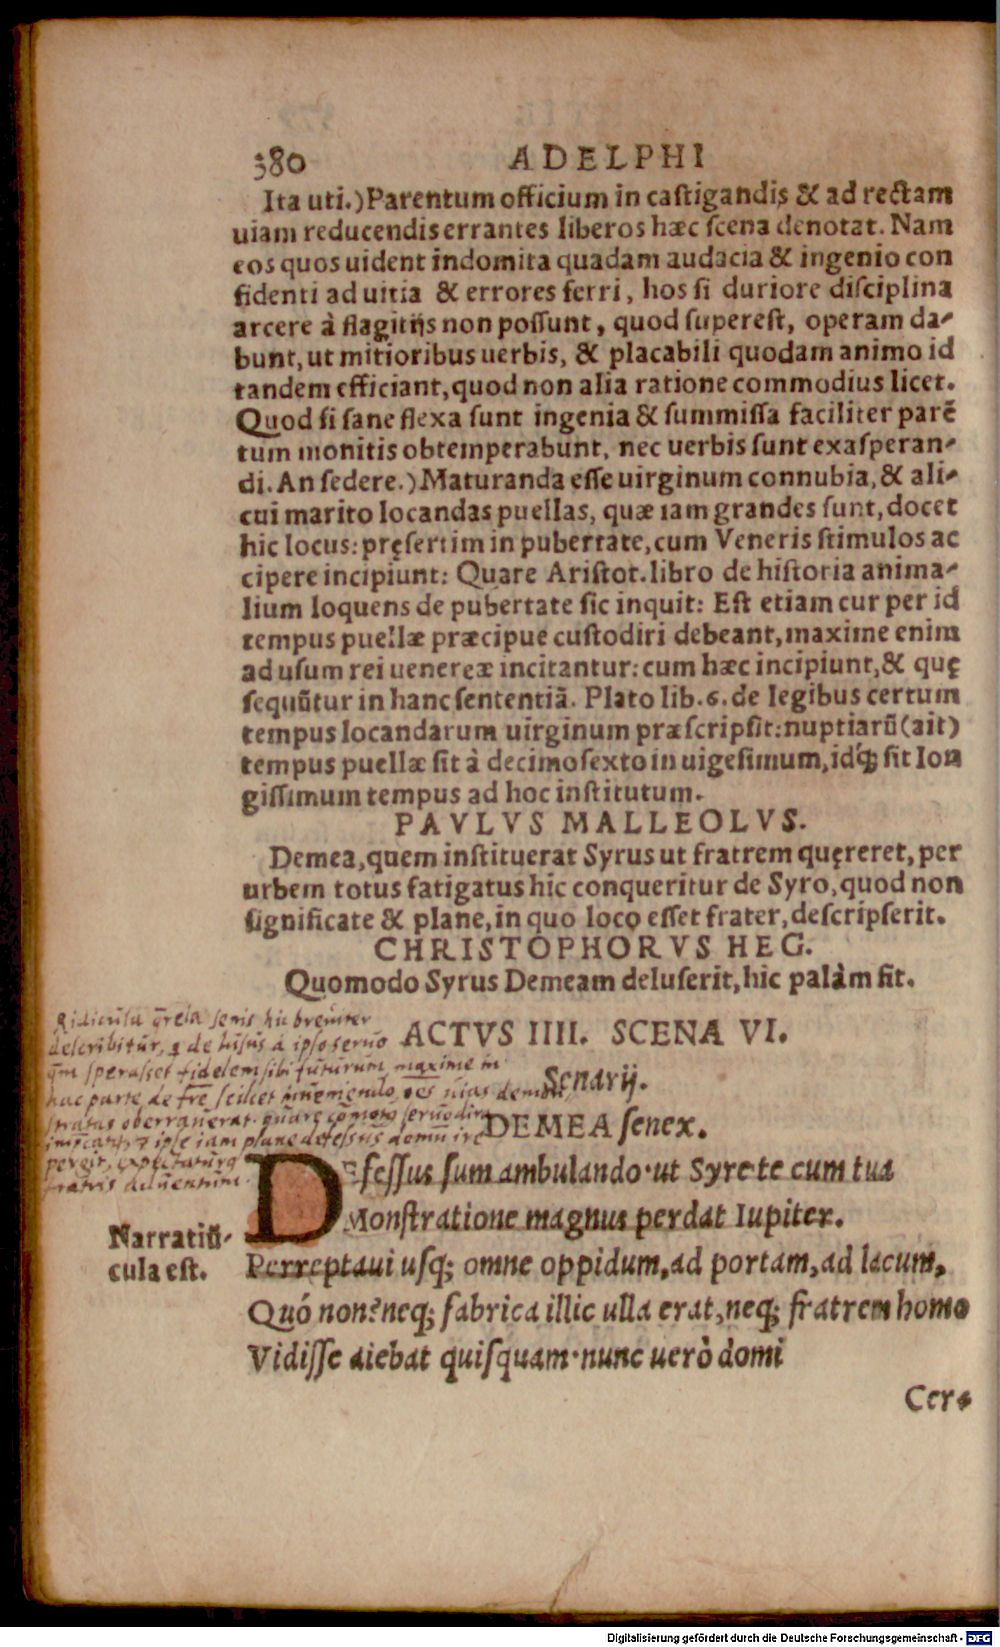 380 ADELPHI
Ita uti.)Parentum officium in castigandis & ad rectam
uiam reducendis errantes liberos hæc scena denotat. Nam
eos quos uident indomita quadam audacia & ingenio con
fidenti ad uitia & errores ferri, hos si duriore disciplina
arcere à flagitijs non possunt, quod superest, operam da-
bunt, ut mitioribus uerbis, & placabili quodam animo id
tandem efficiant, quod non alia ratione commodius licet.
Quod si sane flexa sunt ingenia & summissa faciliter parē
tum monitis obtemperabunt, nec uerbis sunt exasperan-
di. An sedere.) Maturanda esse uirginum connubia, & ali-
cui marito locandas puellas, quæ iam grandes sunt, docet
hic locus: pręsertim in pubertate, cum Veneris stimulos ac
cipere incipiunt: Quare Aristot. libro de historia anima-
lium loquens de pubertate sic inquit: Est etiam cur per id
tempus puellæ præcipue custodiri debeant, maxime enim
ad usum rei uenereæ incitantur: cum hæc incipiunt, & quę
sequūtur in hanc sententiā. Plato lib. 6. de legibus certum
tempus locandarum uirginum præscripsit: nuptiarū (ait)
tempus puellæ sit à decimosexto in uigesimum, idq́; sit lon
gissimum tempus ad hoc institutum.
PAVLVS MALLEOLVS.
Demea, quem instituerat Syrus ut fratrem quęreret, per
urbem totus fatigatus hic conqueritur de Syro, quod non
significate & plane, in quo loco esset frater, descripserit.
CHRISTOPHORVS HEG.
Quomodo Syrus Demeam deluserit, hic palàm fit.
Ridicula q̄rela senis hic breuiter
describitur, de lusus à ipso seruo
q̄m sperasset fidelem sibi futurum, maxime in
hac parte de fr̄e scilicet inueniendo, oēs uias demon
stratas oberrauerat. quare cōmoto seruo dira
ipse iam plane defessus domū ire
pergit, expectaturq
fratris aduentum.
ACTVS IIII. SCENA VI.
Senarij.
DEMEA senex.
DEfessus sum ambulando· ut Syre te cum tua
Monstratione magnus perdat Iupiter.
Narratiū-
cula est.
Perreptaui usq; omne oppidum, ad portam, ad lacum,
Quó non? neq; fabrica illic ulla erat, neq; fratrem homo
Vidisse aiebat quisquam· nunc uerò domi
Cer-
Digitalisierung gefördert durch die Deutsche Forschungsgemeinschaft - DFG